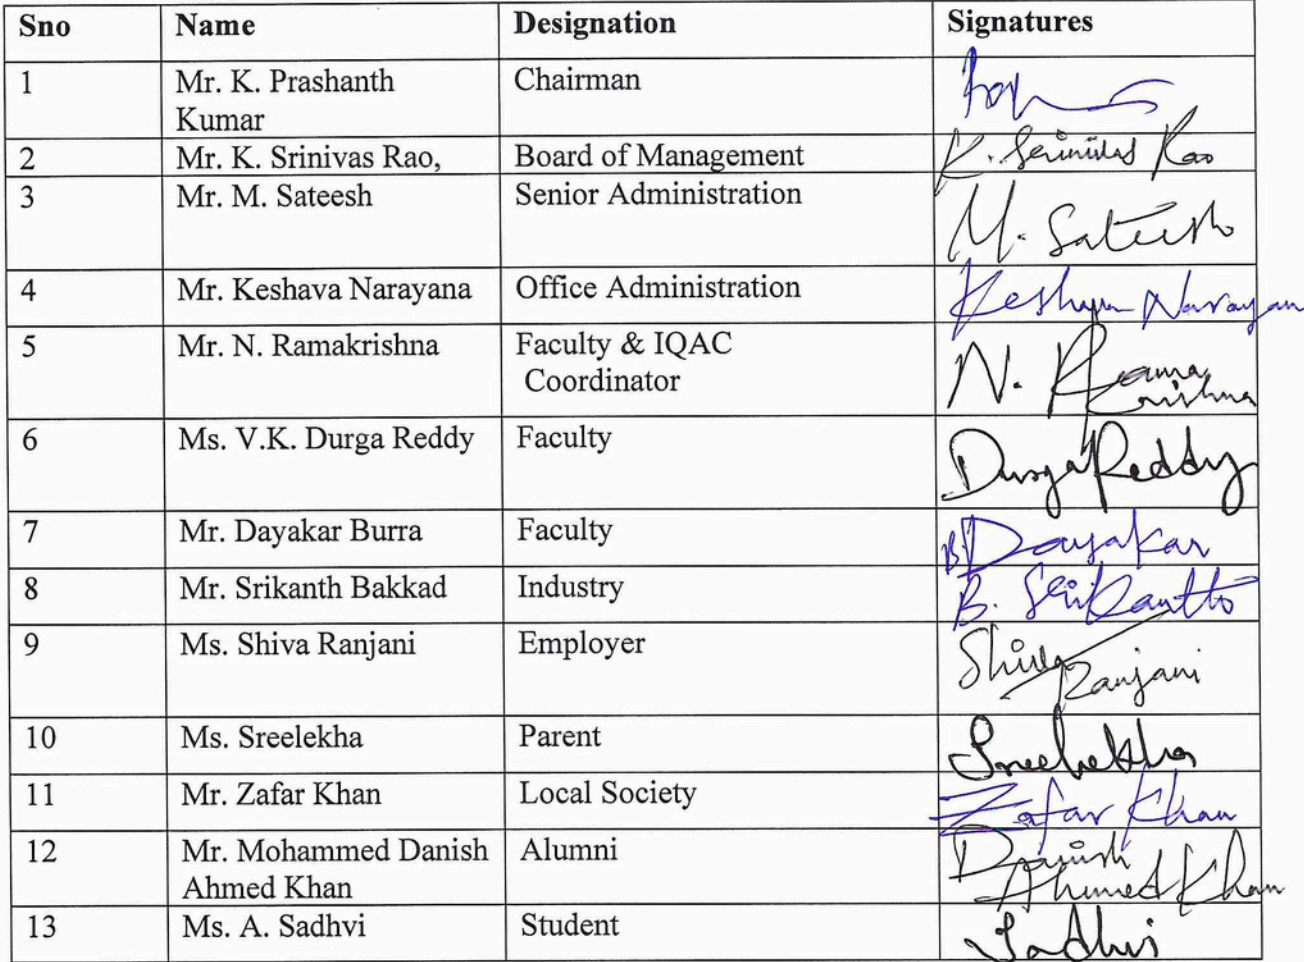 Sno Name Designation Signatures
1 Mr. K. Prashanth Chairman
Kumar
2 Mr. K. Srinivas Rao, Board of Management K. Srinivas Rao
3 Mr. M. Sateesh Senior Administration M. Sateesh
4 Mr. Keshava Narayana Office Administration Keshava Narayan
5 Mr. N. Ramakrishna Faculty & IQAC N. Rama
Coordinator Krishna
6 Ms. V.K. Durga Reddy Faculty Durga Reddy
7 Mr. Dayakar Burra Faculty B. Dayakar
8 Mr. Srikanth Bakkad Industry B. Srikanth
9 Ms. Shiva Ranjani Employer Shiva
Ranjani
10 Ms. Sreelekha Parent Sreelekha
11 Mr. Zafar Khan Local Society Zafar Khan
12 Mr. Mohammed Danish Alumni Danish
Ahmed Khan Ahmed Khan
13 Ms. A. Sadhvi Student Sadhvi